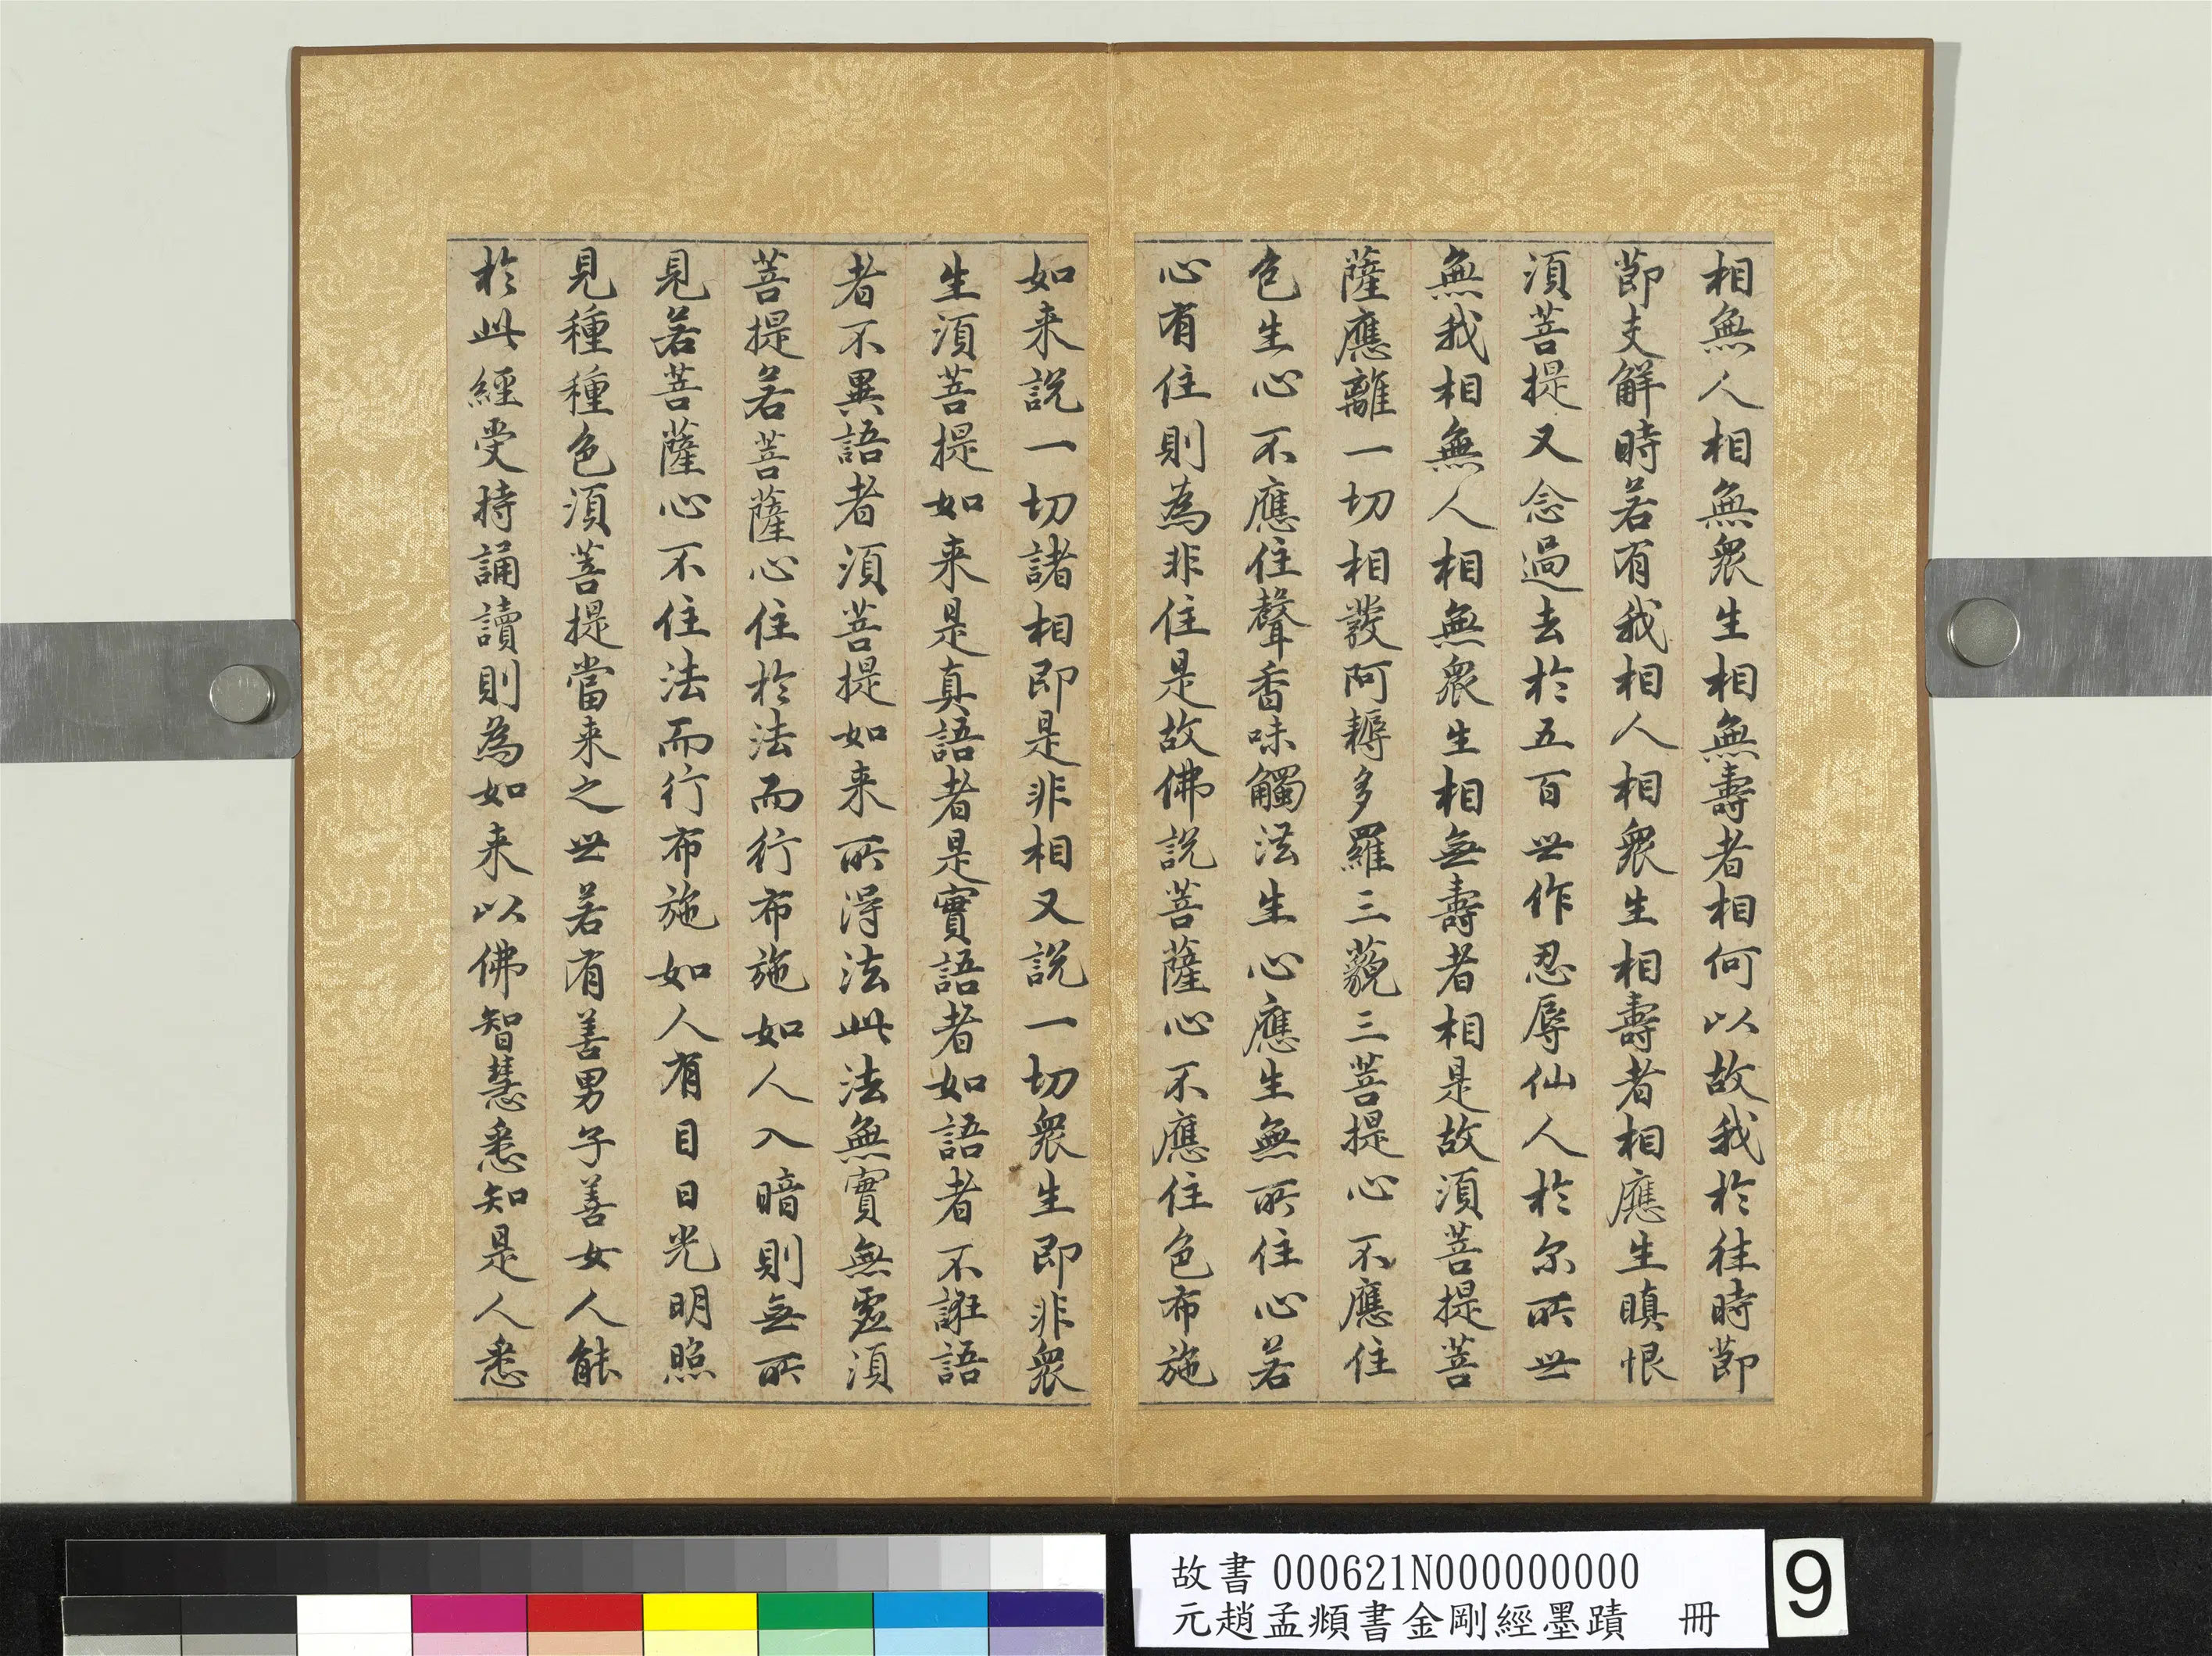 相無人相無衆生相無壽者相何以故我於往時節
節支解時若有我相人相衆生相壽者相應生瞋恨
須菩提又念過去於五百世作忍辱仙人於尔所世
無我相無人相無衆生相無壽者相是故須菩提菩
薩應離一切相發阿耨多羅三藐三菩提心不應住
色生心不應住聲香味觸法生心應生無所住心若
心有住則為非住是故佛說菩薩心不應住色布施
如来說一切諸相即是非相又說一切衆生即非衆
生須菩提如来是真語者是實語者如語者不誑語
者不異語者須菩提如来所得法此法無實無虛須
菩提若菩薩心住於法而行布施如人入暗則無所
見若菩薩心不住法而行布施如人有目日光明照
見種種色須菩提當来之世若有善男子善女人能
於此經受持誦讀則為如来以佛智慧悉知是人悉
故書 000621N000000000
元趙孟頫書金剛經墨蹟 冊
9